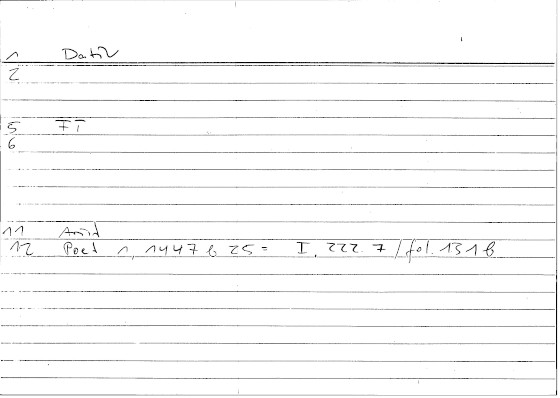 1 Dativ
2
5 FT
6
11 Arist
12 Poet 1, 1447 b 25 = I, 222. 7 / fol. 131 b